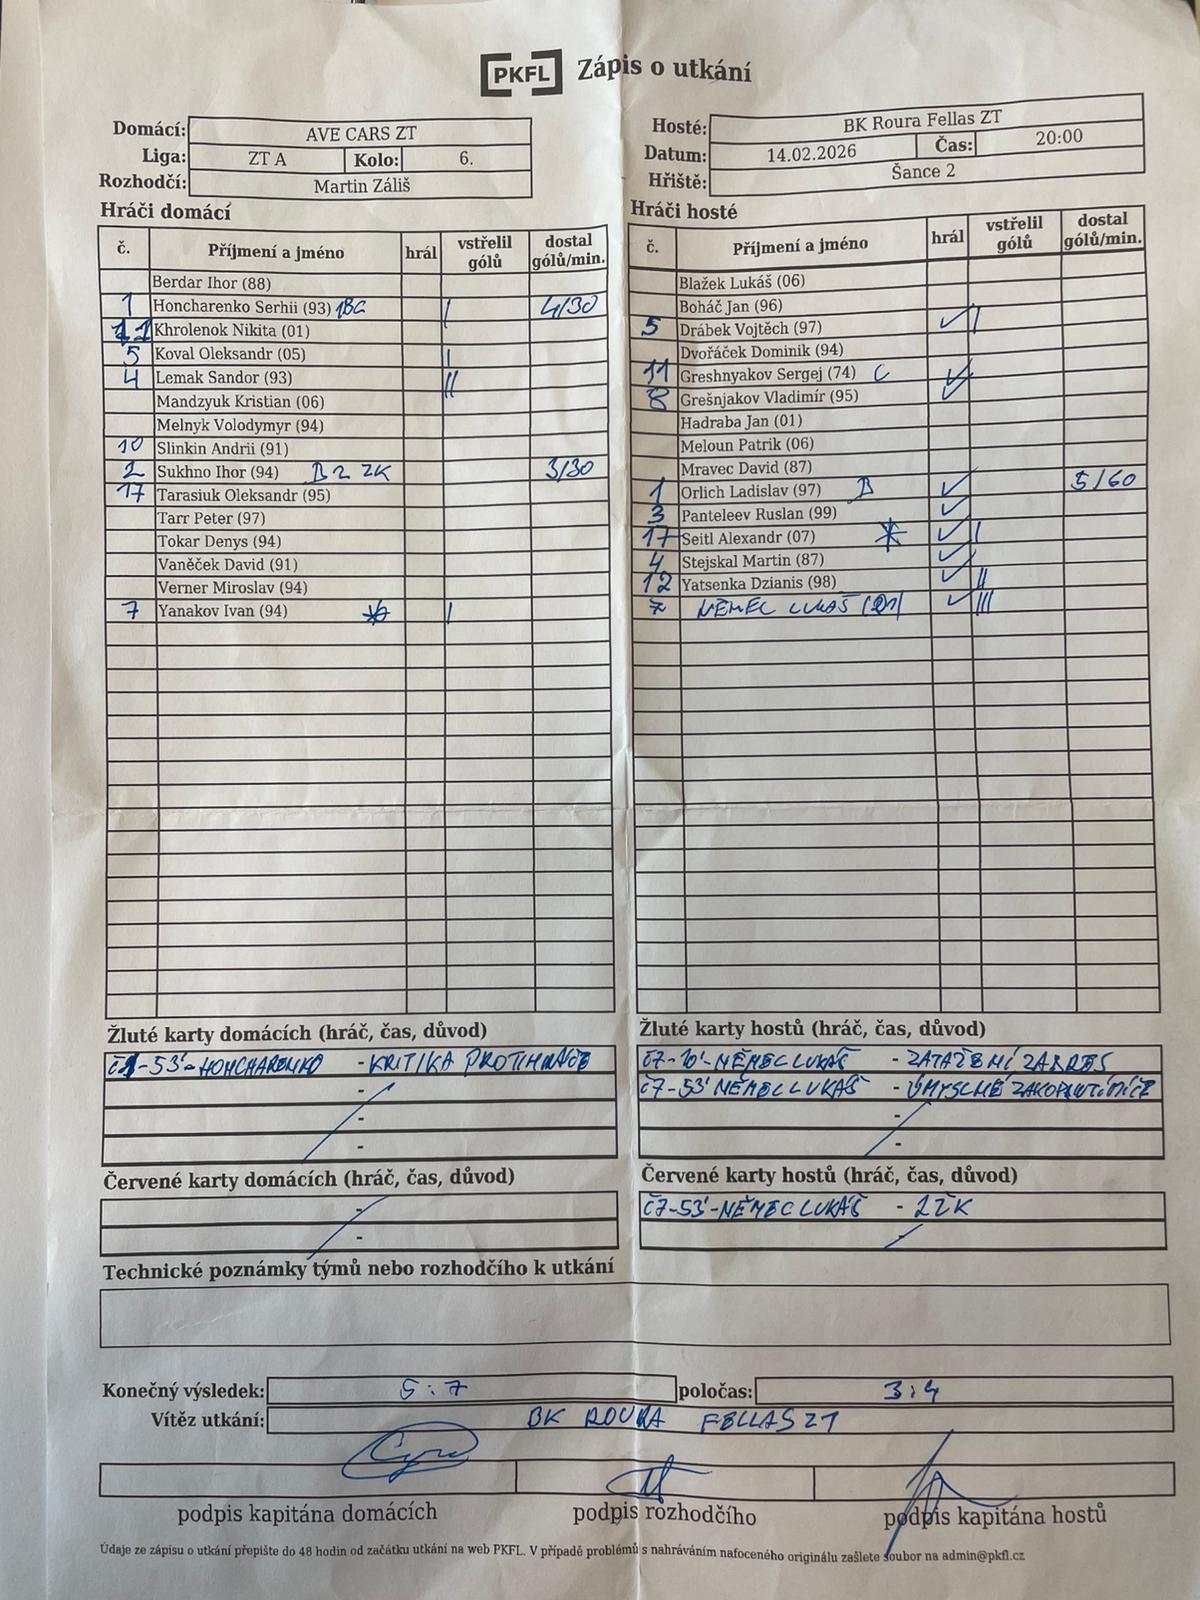 PKFL Zápis o utkání
Domácí: AVE CARS ZT
Liga: ZT A Kolo: 6.
Rozhodčí: Martin Záliš
Hosté: BK Roura Fellas ZT
Datum: 14.02.2026 Čas: 20:00
Hřiště: Šance 2
Hráči domácí
č. Příjmení a jméno hrál vstřelil gólů dostal gólů/min.
Berdar Ihor (88)
1 Honcharenko Serhii (93) 1BC | 4/30
11 Khrolenok Nikita (01)
5 Koval Oleksandr (05) |
4 Lemak Sandor (93) ||
Mandzyuk Kristian (06)
Melnyk Volodymyr (94)
10 Slinkin Andrii (91)
2 Sukhno Ihor (94) B 2 ZK 3/30
17 Tarasiuk Oleksandr (95)
Tarr Peter (97)
Tokar Denys (94)
Vaněček David (91)
Verner Miroslav (94)
7 Yanakov Ivan (94) * |
Hráči hosté
č. Příjmení a jméno hrál vstřelil gólů dostal gólů/min.
Blažek Lukáš (06)
Boháč Jan (96)
5 Drábek Vojtěch (97) ✓ |
Dvořáček Dominik (94)
11 Greshnyakov Sergej (74) C ✓
8 Grešnjakov Vladimír (95) ✓
Hadraba Jan (01)
Meloun Patrik (06)
Mravec David (87)
1 Orlich Ladislav (97) B ✓ 5/60
3 Panteleev Ruslan (99) ✓
17 Seitl Alexandr (07) * ✓ |
4 Stejskal Martin (87) ✓
12 Yatsenka Dzianis (98) ✓ ||
7 NĚMEC LUKÁŠ (01) ✓ |||
Žluté karty domácích (hráč, čas, důvod)
č1-53'-HONCHARENKO - KRITIKA PROTIHRÁČE
-
-
-
Žluté karty hostů (hráč, čas, důvod)
č7-10'-NĚMEC LUKÁŠ - ZATAŽENÍ ZA DRES
č7-53' NĚMEC LUKÁŠ - ÚMYSLNÉ
-
-
Červené karty domácích (hráč, čas, důvod)
-
-
Červené karty hostů (hráč, čas, důvod)
č7-53'-NĚMEC LUKÁŠ - 2ŽK
-
Technické poznámky týmů nebo rozhodčího k utkání
Konečný výsledek: 5:7 poločas: 3:4
Vítěz utkání: BK ROURA FELLAS ZT
podpis kapitána domácích podpis rozhodčího podpis kapitána hostů
Údaje ze zápisu o utkání přepište do 48 hodin od začátku utkání na web PKFL. V případě problémů s nahráváním nafoceného originálu zašlete soubor na admin@pkfl.cz